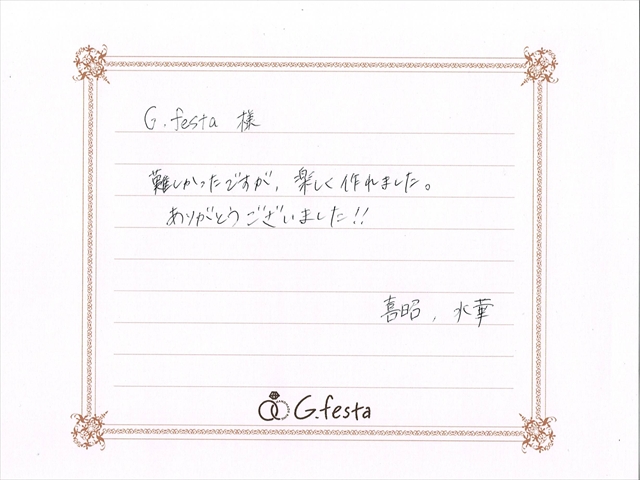 G.festa 様
難しかったですが、楽しく作れました。
ありがとうございました!!
喜昭, 水華
G.festa